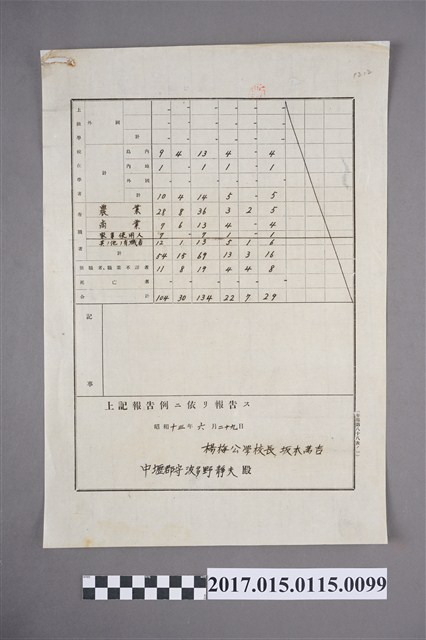 12-2
上級學校在學者
外國
計
島內 9 4 13 4 - 4
內地 1 - 1 1 - 1
外國 - - - - - -
計 10 4 14 5 - 5
有職者
農業 28 8 36 3 2 5
商業 7 6 13 4 - 4
家事使用人 7 - 7 1 - 1
其ノ他ノ有職者 12 1 13 5 1 6
計 54 15 69 13 3 16
11 8 19 4 4 8
死亡者 - - - - - -
合計 104 30 134 22 7 29
記事
上記報告例ニ依リ報告ス
昭和十三年六月二十九日
楊梅公學校長 坂本萬吉
中壢郡守波多野靜夫殿
2017.015.0115.0099